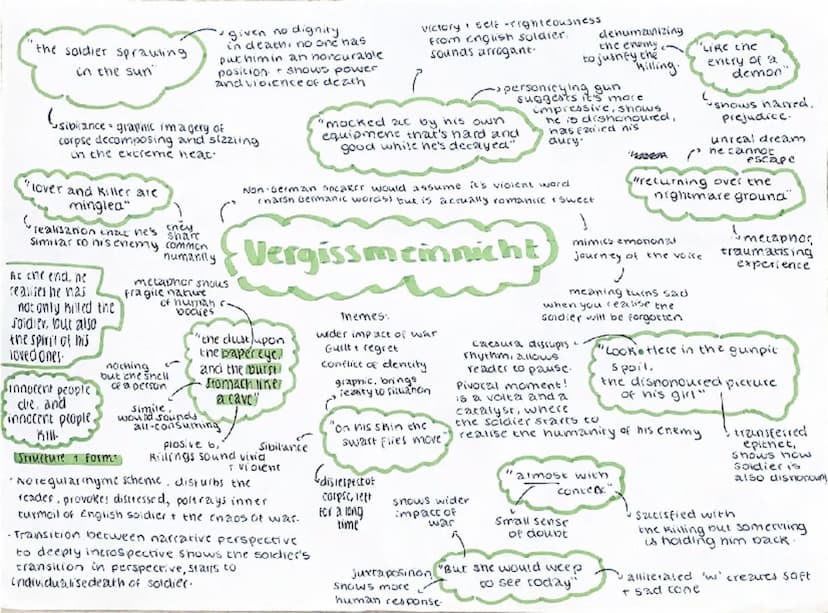 "the soldier sprawling
in the sun"
given no dignity
in death, no one has
put him in an honourable
position + shows power
and violence of death
sibilance + graphic imagery of
corpse decomposing and sizzling
in the extreme heat.
victory + self-righteousness
from English soldier.
sounds arrogant.
"mocked at by his own
equipment that's hard and
good while he's decayed"
personifying gun
suggests it's more
impressive, shows
he is dishonoured,
has failed his
duty.
dehumanizing
the enemy
to justify the
killing.
"Like the
entry of a
demon"
shows hatred,
prejudice.
"lover and killer are
mingled"
realisation that he's
similar to his enemy
they
share
common
humanity
Non-German speaker would assume it's violent word
(harsh Germanic words) but is actually romantic + sweet
Vergissmeinnicht
mimics emotional
journey of the voice
meaning turns sad
when you realise the
soldier will be forgotten
unreal dream
he cannot
escape
"returning over the
nightmare ground"
metaphor,
traumatising
experience
At the end, he
realises he has
not only killed the
soldier, but also
the spirit of his
loved ones.
Innocent people
die, and
innocent people
kill.
metaphor shows
fragile nature
of human
bodies
"the dust upon
the paper eye,
and the burst
stomach like
a cave"
nothing
but the shell
of a person
simile,
wound sounds
all-consuming
plosive b,
killings sound vivid
+ violent
Themes:
wider impact of war
Guilt + regret
conflict of identity
graphic, brings
reality to situation
"on his skin the
swart flies move"
Sibilance
disrespect of
corpse, left
for a long
time
caesura disrupts
rhythm, allows
reader to pause.
Pivotal moment!
is a volta and a
catalyst, where
the soldier starts to
realise the humanity of his enemy
"Look. Here in the gunpit
spoil.
the dishonoured picture
of his girl"
transferred
epithet,
shows how
soldier is
also dishonoured
Structure + Form:
· No regular rhyme scheme, disturbs the
reader, provokes distressed, portrays inner
turmoil of English soldier + the chaos of war.
· Transition between narrative perspective
to deeply introspective shows the soldier's
transition in perspective, starts to
individualise death of soldier.
"almost with
content"
small sense
of doubt
satisfied with
the killing but something
is holding him back.
shows wider
impact of
war
"But she would weep
to see today"
juxtaposition
shows more
human response.
alliterated 'w' creates soft
+ sad tone